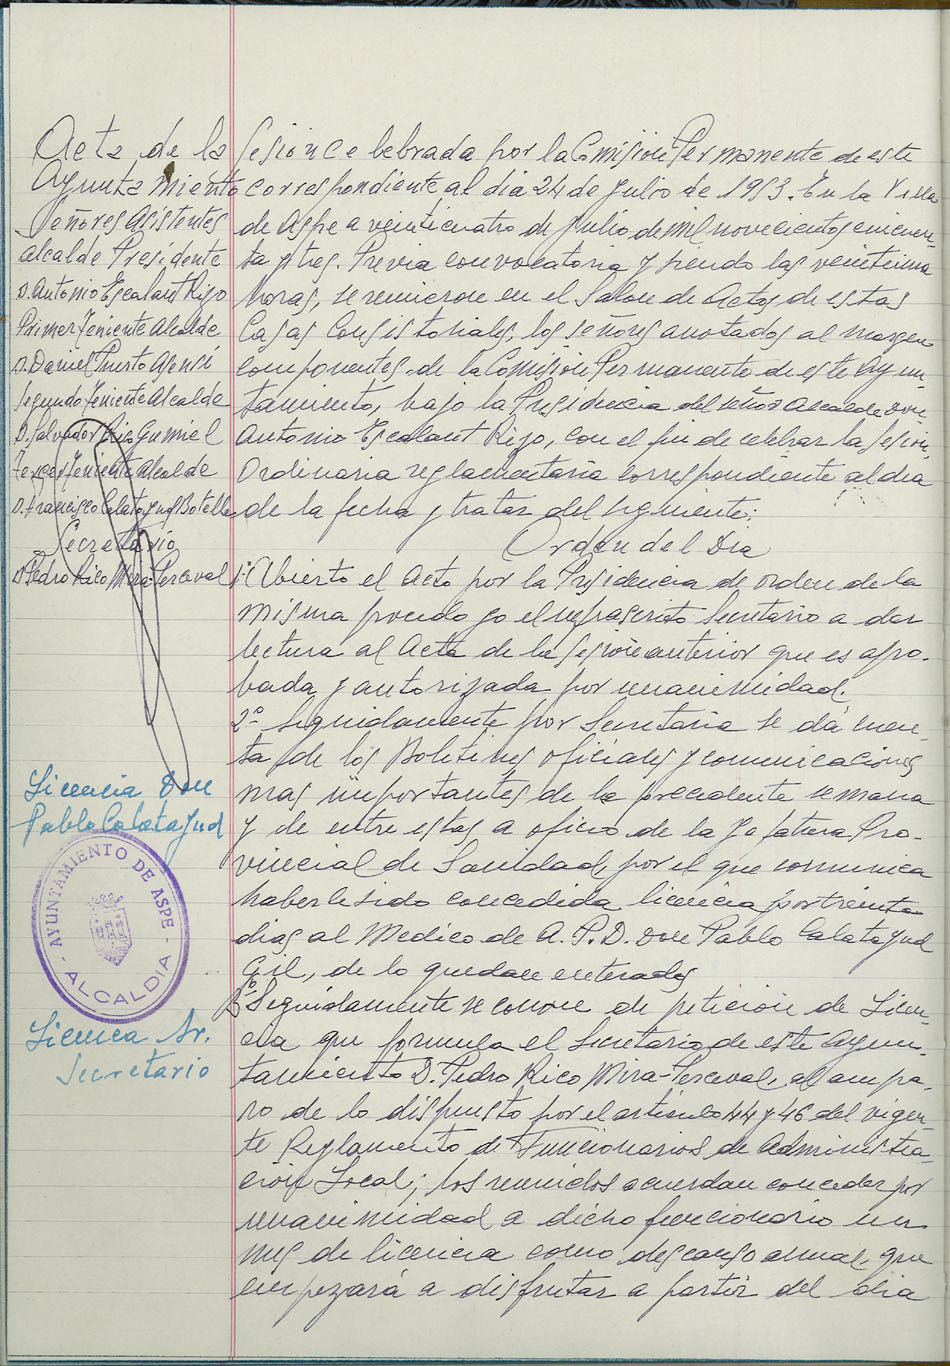 Acta de la Sesión celebrada por la Comisión Permanente de este
Ayuntamiento correspondiente al dia 24 de Julio de 1953. En la Villa
Señores Asistentes
Alcalde Presidente
D. Antonio Escalant Rizo
Primer Teniente Alcalde
D. Daniel Puerto Asensi
Segundo Teniente Alcalde
D. Salvador Rizo Gumiel
Tercer Teniente Alcalde
D. Francisco Calatayud Botella
Secretario
D. Pedro Rico Mira-Perceval
de Aspe a veinticuatro de Julio de mil novecientos cincuen-
ta y tres. Previa convocatoria y siendo las veintiuna
horas, se reunieron en el Salon de Actos de estas
Casas Consistoriales, los señores anotados al margen
componentes de la Comisión Permanente de este Ayun-
tamiento, bajo la Presidencia del señor Alcalde Don
Antonio Escalant Rizo, con el fin de celebrar la sesión
Ordinaria reglamentaria correspondiente al dia
de la fecha y tratar del siguiente:
Orden del Dia
1º Abierto el Acto por la Presidencia de orden de la
misma procedo yo el infrascrito Secretario a dar
lectura al Acta de la sesión anterior que es apro-
bada y autorizada por unanimidad.
2º Seguidamente por Secretaria se dá cuen-
ta de los Boletines oficiales y comunicaciones
mas importantes de la precedente semana
y de entre estas a oficio de la Jefatura Pro-
vincial de Sanidad, por el que comunica
haberle sido concedida licencia por treinta
dias al Medico de A.P.D. Don Pablo Calatayud
Gil, de lo quedan enterados
3º Seguidamente se conoce de petición de Licen-
cia que formula el Secretario de este Ayun-
tamiento D. Pedro Rico Mira-Perceval, al ampa-
ro de lo dispuesto por el articulo 44 y 46 del vigen-
te Reglamento de Funcionarios de Administra-
ción Local; los reunidos acuerdan conceder por
unanimidad a dicho funcionario un
mes de licencia como descanso anual, que
empezará a disfrutar a partir del dia
Licencia Don
Pablo Calatayud
AYUNTAMIENTO DE ASPE
ALCALDIA
Licencia Sr.
Secretario